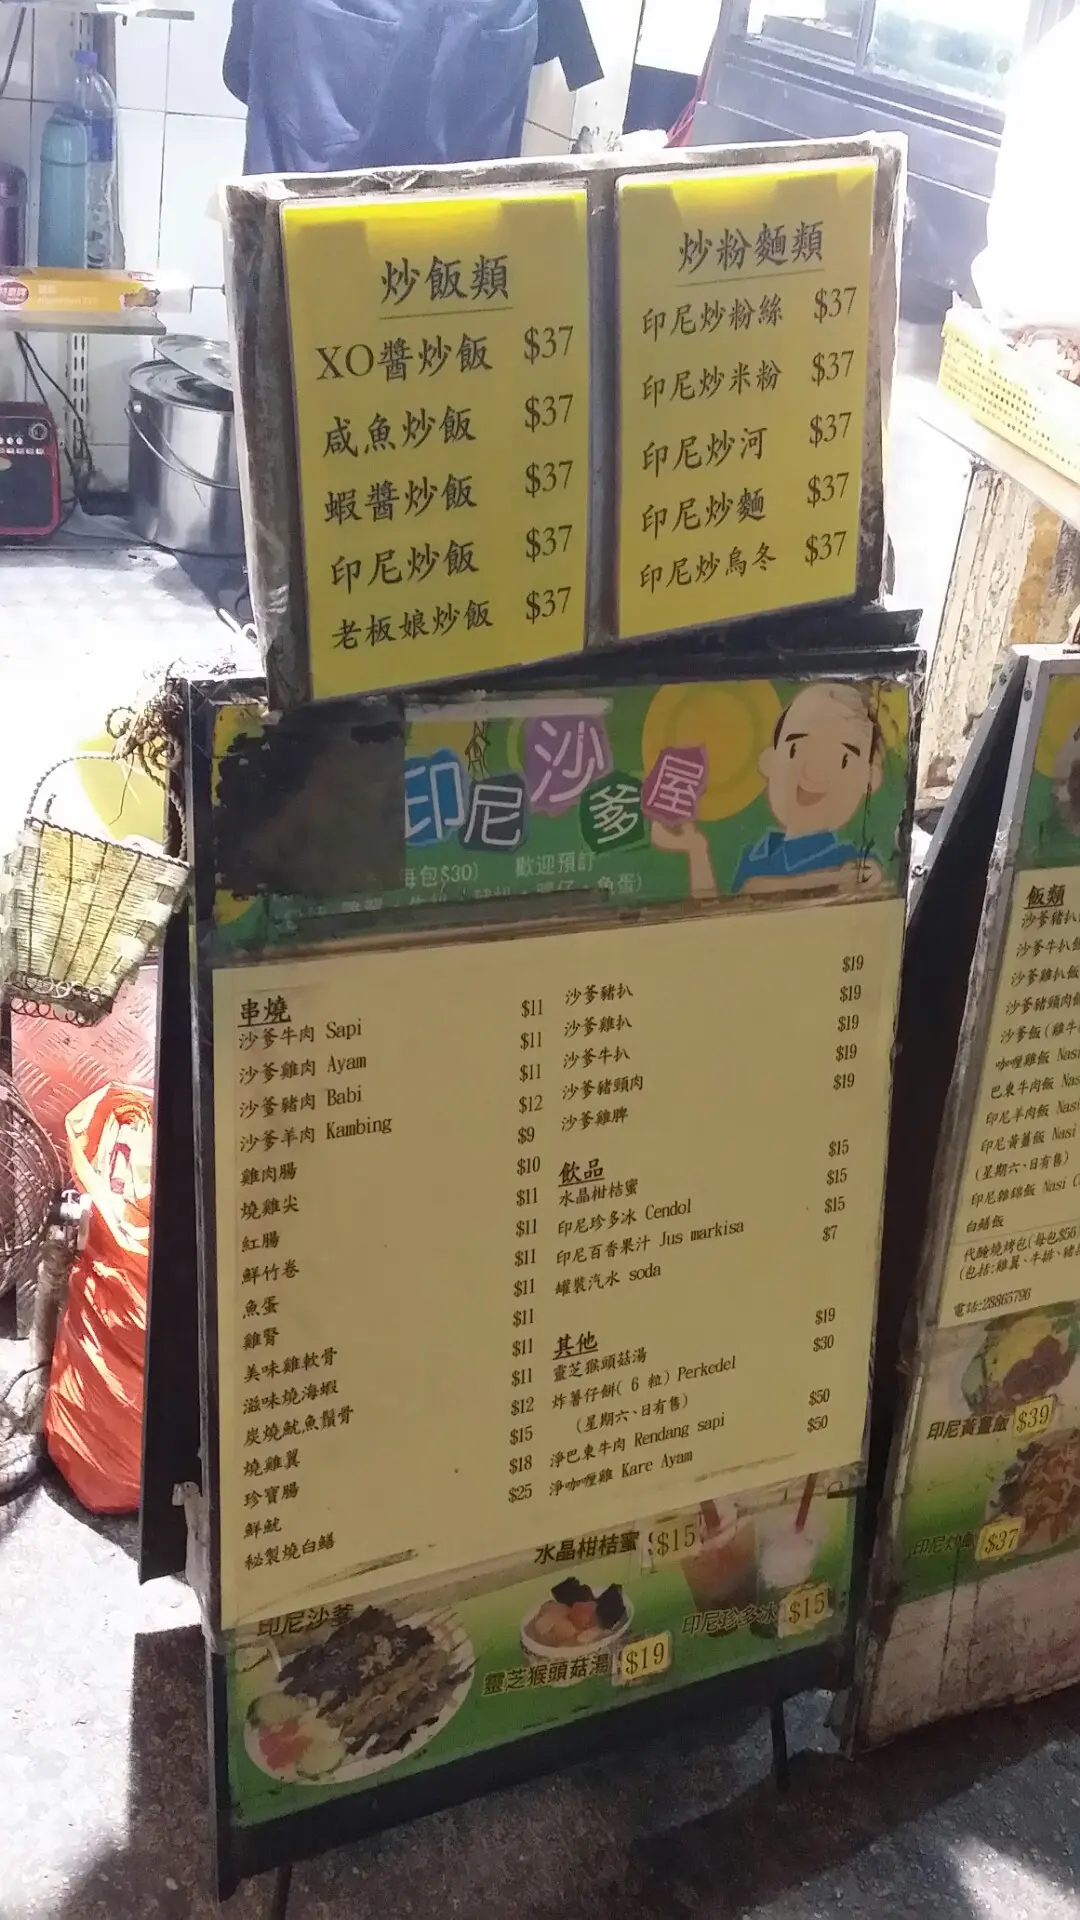 炒飯類
XO醬炒飯 $37
咸魚炒飯 $37
蝦醬炒飯 $37
印尼炒飯 $37
老板娘炒飯 $37
炒粉麵類
印尼炒粉絲 $37
印尼炒米粉 $37
印尼炒河 $37
印尼炒麵 $37
印尼炒烏冬 $37
印尼沙爹屋
每包$30) 歡迎預訂
串燒
沙爹牛肉 Sapi $11
沙爹雞肉 Ayam $11
沙爹豬肉 Babi $11
沙爹羊肉 Kambing $12
雞肉腸 $9
燒雞尖 $10
紅腸 $11
鮮竹卷 $11
魚蛋 $11
雞腎 $11
美味雞軟骨 $11
滋味燒海蝦 $11
炭燒魷魚鬚骨 $11
燒雞翼 $12
珍寶腸 $15
鮮魷 $18
秘製燒白鱔 $25
沙爹豬扒 $19
沙爹雞扒 $19
沙爹牛扒 $19
沙爹豬頸肉 $19
沙爹雞脾 $19
飲品
水晶柑桔蜜 $15
印尼珍多冰 Cendol $15
印尼百香果汁 Jus markisa $15
罐裝汽水 soda $7
其他
靈芝猴頭菇湯 $19
炸薯仔餅( 6 粒) Perkedel $30
(星期六、日有售)
淨巴東牛肉 Rendang sapi $50
淨咖喱雞 Kare Ayam $50
水晶柑桔蜜 $15
印尼沙爹
靈芝猴頭菇湯 $19
印尼珍多冰 $15
飯類
沙爹豬扒
沙爹牛扒
沙爹雞扒飯
沙爹豬頸肉
沙爹飯(雞牛
咖喱雞飯 Nas
巴東牛肉飯 Nas
印尼羊肉飯 Nas
印尼黃薑飯 Nasi
(星期六、日有售)
印尼雜錦飯 Nasi C
白鱔飯
代醃燒烤包(每包$56
(包括:雞翼、牛排、豬
電話:28865796
印尼黃薑飯 $39
印尼炒 $37